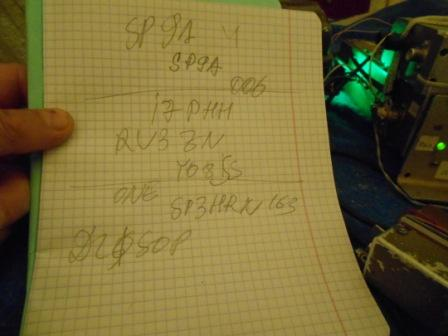 SP9A Y
SP9A
006
I7PHH
RV3ZN
YO8SS
ONE SP3HRN 163